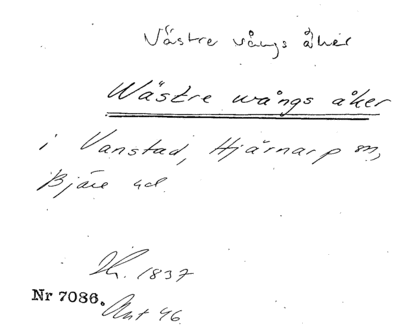 Västre vångs åker
Wästre wångs åker
i Vanstad, Hjärnarp sn,
Bjäre hd.
Lh. 1837
Nr 7086. Akt 46